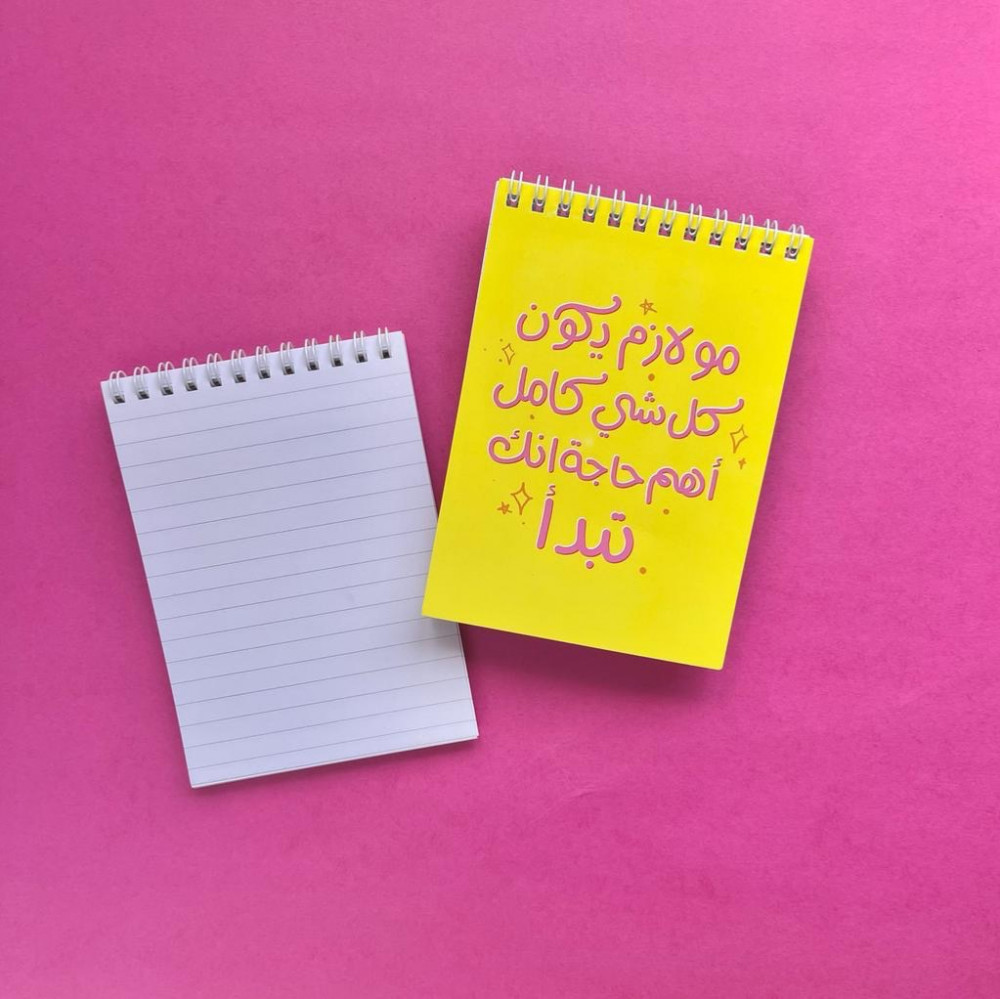 مو لازم يكون
كل شي كامل
أهم حاجة انك
تبدأ